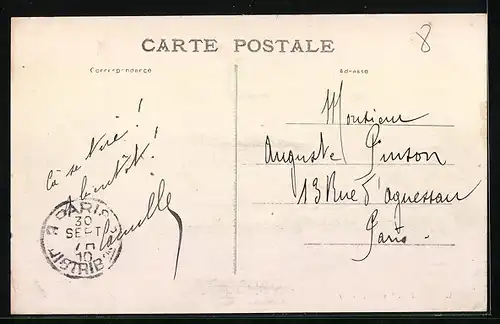 CARTE POSTALE
8
Correspondance
Adresse
à bientôt !
Camille
PARIS
30
SEPT
10
DISTRIB
Monsieur
Auguste Pinson
13 Rue d'Aguesseau
Paris